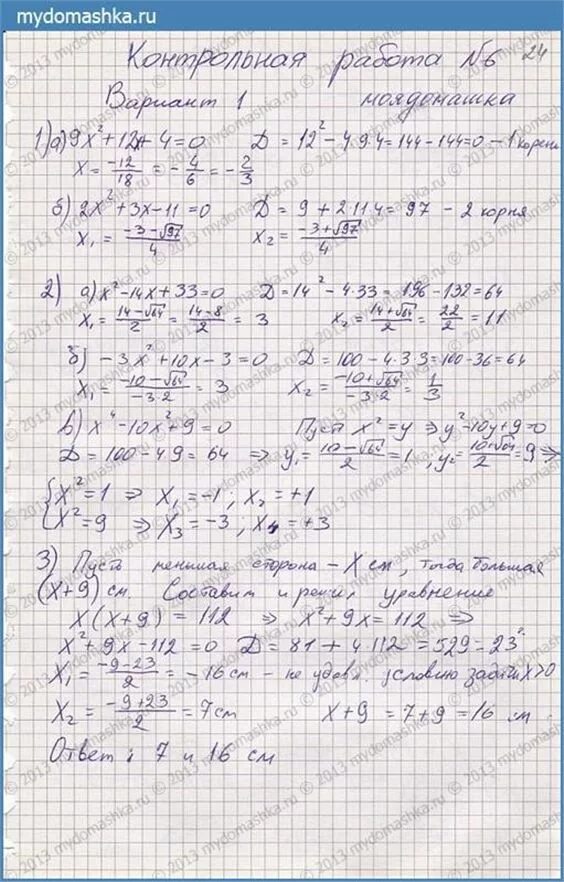 mydomashka.ru
Контрольная работа №6 24
Вариант 1 моядомашка
1) а) 9x² + 12x + 4 = 0 D = 12² - 4·9·4 = 144 - 144 = 0 - 1 корень
x = -12/18 = -4/6 = -2/3
б) 2x² + 3x - 11 = 0 D = 9 + 2·11·4 = 97 - 2 корня
x₁ = (-3-√97)/4 x₂ = (-3+√97)/4
2) а) x² - 14x + 33 = 0 D = 14² - 4·33 = 196 - 132 = 64
x₁ = (14-√64)/2 = (14-8)/2 = 3 x₂ = (14+√64)/2 = 22/2 = 11
б) -3x² + 10x - 3 = 0 D = 100 - 4·3·3 = 100 - 36 = 64
x₁ = (-10-√64)/(-3·2) = 3 x₂ = (-10+√64)/(-3·2) = 1/3
в) x⁴ - 10x² + 9 = 0 Пусть x² = y ⇒ y² - 10y + 9 = 0
D = 100 - 4·9 = 64 ⇒ y₁ = (10-√64)/2 = 1, y₂ = (10+√64)/2 = 9 ⇒
{x² = 1 ⇒ x₁ = -1; x₂ = +1
x² = 9 ⇒ x₃ = -3; x₄ = +3
3) Пусть меньшая сторона - x см, тогда большая
(x+9) см. Составим и решим уравнение
x(x+9) = 112 ⇒ x² + 9x = 112 ⇒
x² + 9x - 112 = 0 D = 81 + 4·112 = 529 = 23²
x₁ = (-9-23)/2 = -16 см - не удовл. условию задачи x>0
x₂ = (-9+23)/2 = 7 см x+9 = 7+9 = 16 см.
Ответ: 7 и 16 см
© 2013 mydomashka.ru